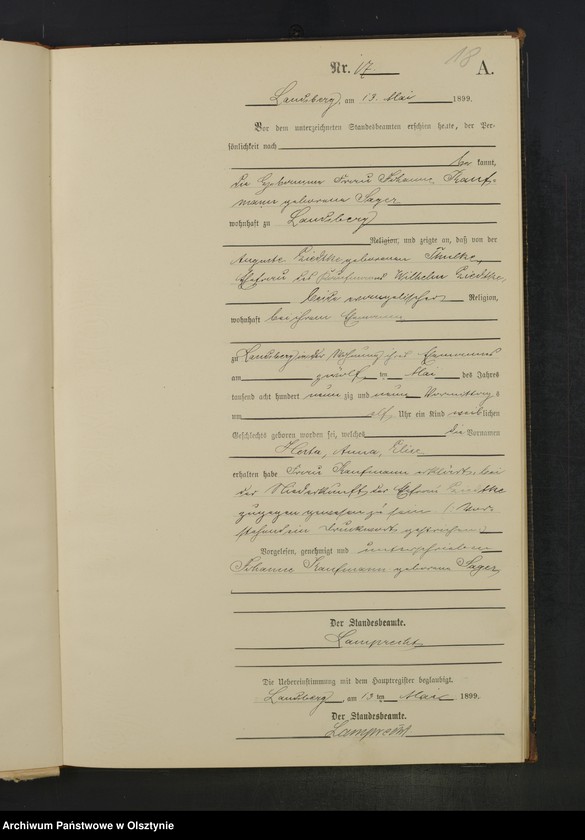 18
Nr. 17 A.
Landsberg, am 13. Mai 1899.
Vor dem unterzeichneten Standesbeamten erschien heute, der Per-
sönlichkeit nach
be kannt,
die Hebamme Frau Johanne Kauf-
mann geborene Sager
wohnhaft zu Landsberg
Religion, und zeigte an, daß von der
Auguste geborenen
Ehefrau des Wilhelm
beide evangelischer Religion,
wohnhaft bei ihrem Ehemann
zu Landsberg in der Wohnung ihres Ehemanns
am zwölf ten Mai des Jahres
tausend acht hundert neun zig und neun Vormittags
um elf Uhr ein Kind weib lichen
Geschlechts geboren worden sei, welches die Vornamen
Herta, Anna, Elise
erhalten habe Frau Kaufmann erklärte, bei
der Niederkunft der Ehefrau
zugegen gewesen zu sein (: Vor-
stehend ein Druckwort gestrichen
Vorgelesen, genehmigt und unterschrieben
Johanne Kaufmann geborene Sager
Der Standesbeamte.
Lamprecht
Die Uebereinstimmung mit dem Hauptregister beglaubigt.
Landsberg, am 13 ten Mai 1899.
Der Standesbeamte.
Lamprecht
Archiwum Państwowe w Olsztynie